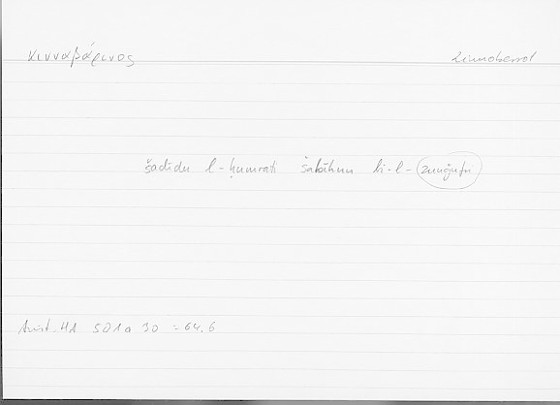 κινναβάρινος zinnoberrot
šadīdu l-ḥumrati šabīhun bi-l-zunǧufri
Arist. HA 501a 30 = 64.6